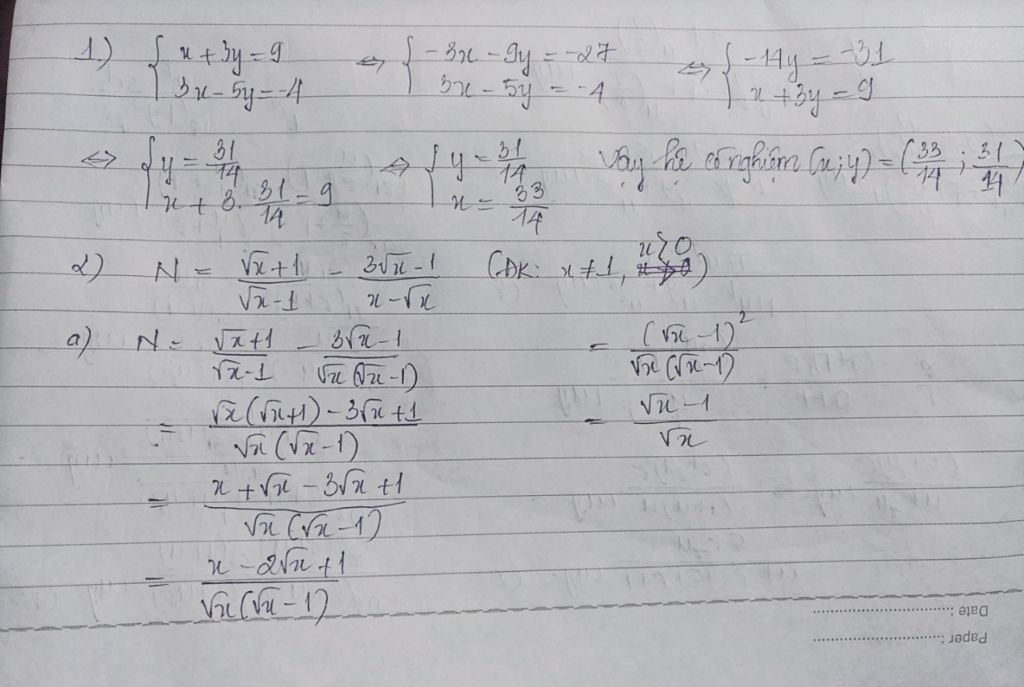 1.) { x + 3y = 9 ; 3x - 5y = -4 ⇔ { -3x - 9y = -27 ; 3x - 5y = -4 ⇔ { -14y = -31 ; x + 3y = 9
⇔ { y = 31/14 ; x + 3. 31/14 = 9 ⇔ { y = 31/14 ; x = 33/14 Vậy hệ có nghiệm (x; y) = (33/14 ; 31/14)
2) N = (√x + 1)/(√x - 1) - (3√x - 1)/(x - √x) (ĐK: x ≠ 1, x > 0)
a) N = (√x + 1)/(√x - 1) - (3√x - 1)/(√x (√x - 1))
= (√x (√x + 1) - 3√x + 1)/(√x (√x - 1))
= (x + √x - 3√x + 1)/(√x (√x - 1))
= (x - 2√x + 1)/(√x (√x - 1))
= (√x - 1)²/(√x (√x - 1))
= (√x - 1)/√x
Date :
Paper :